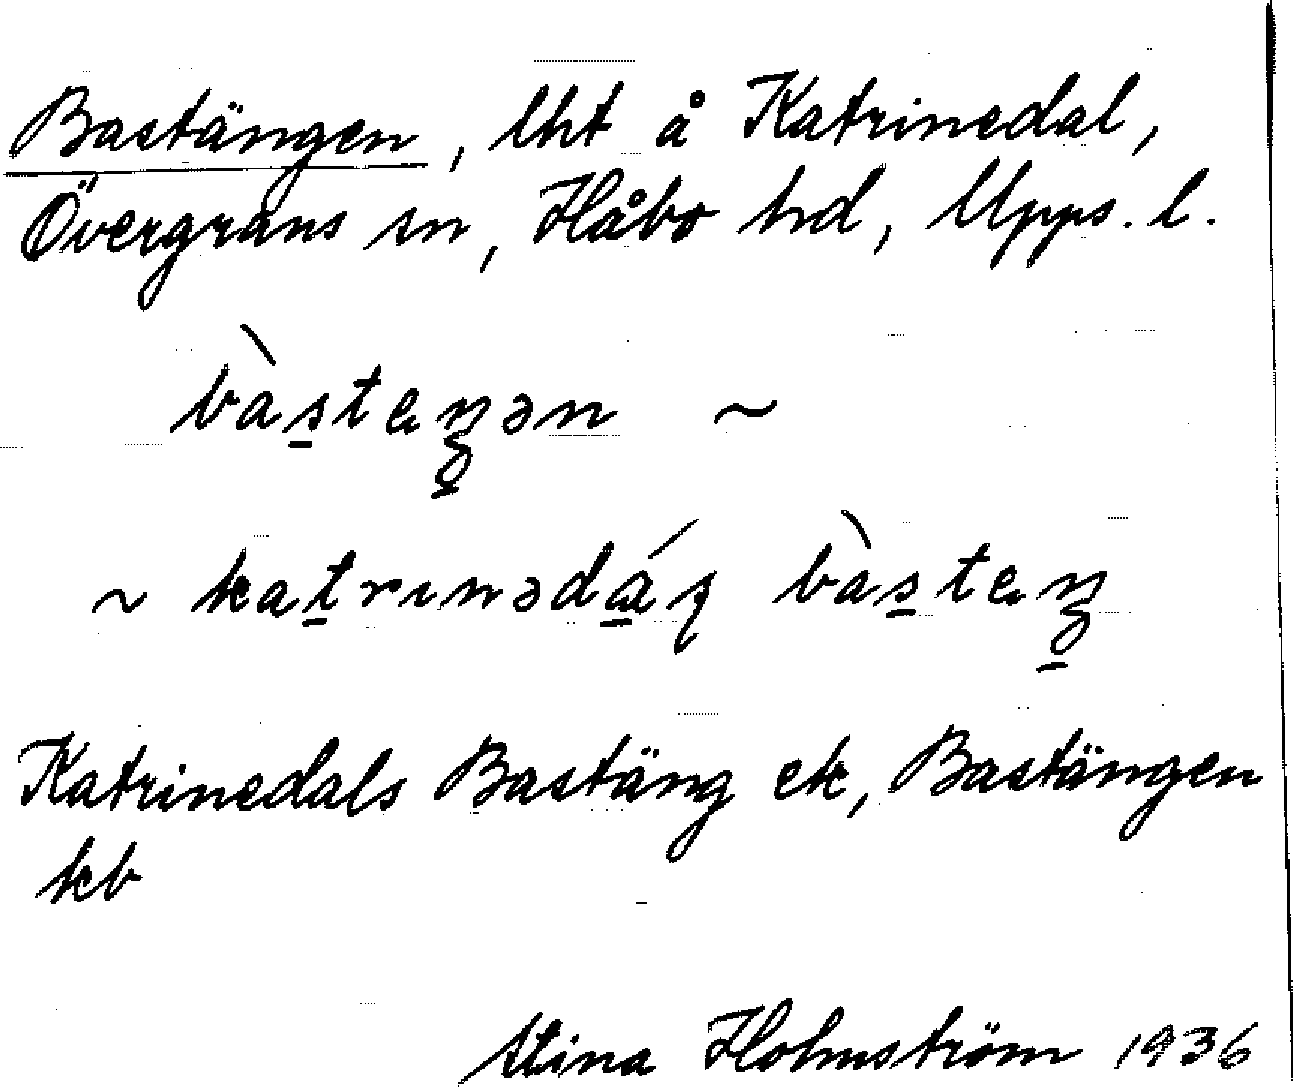 Bastängen, lht å Katrinedal,
Övergrans sn, Håbo hd, Upps. l.
bàs̠teŋən ~
~ kat̠rınədáɽ bàs̠teŋ
Katrinedals Bastäng ek, Bastängen
kb
Stina Holmström 1936